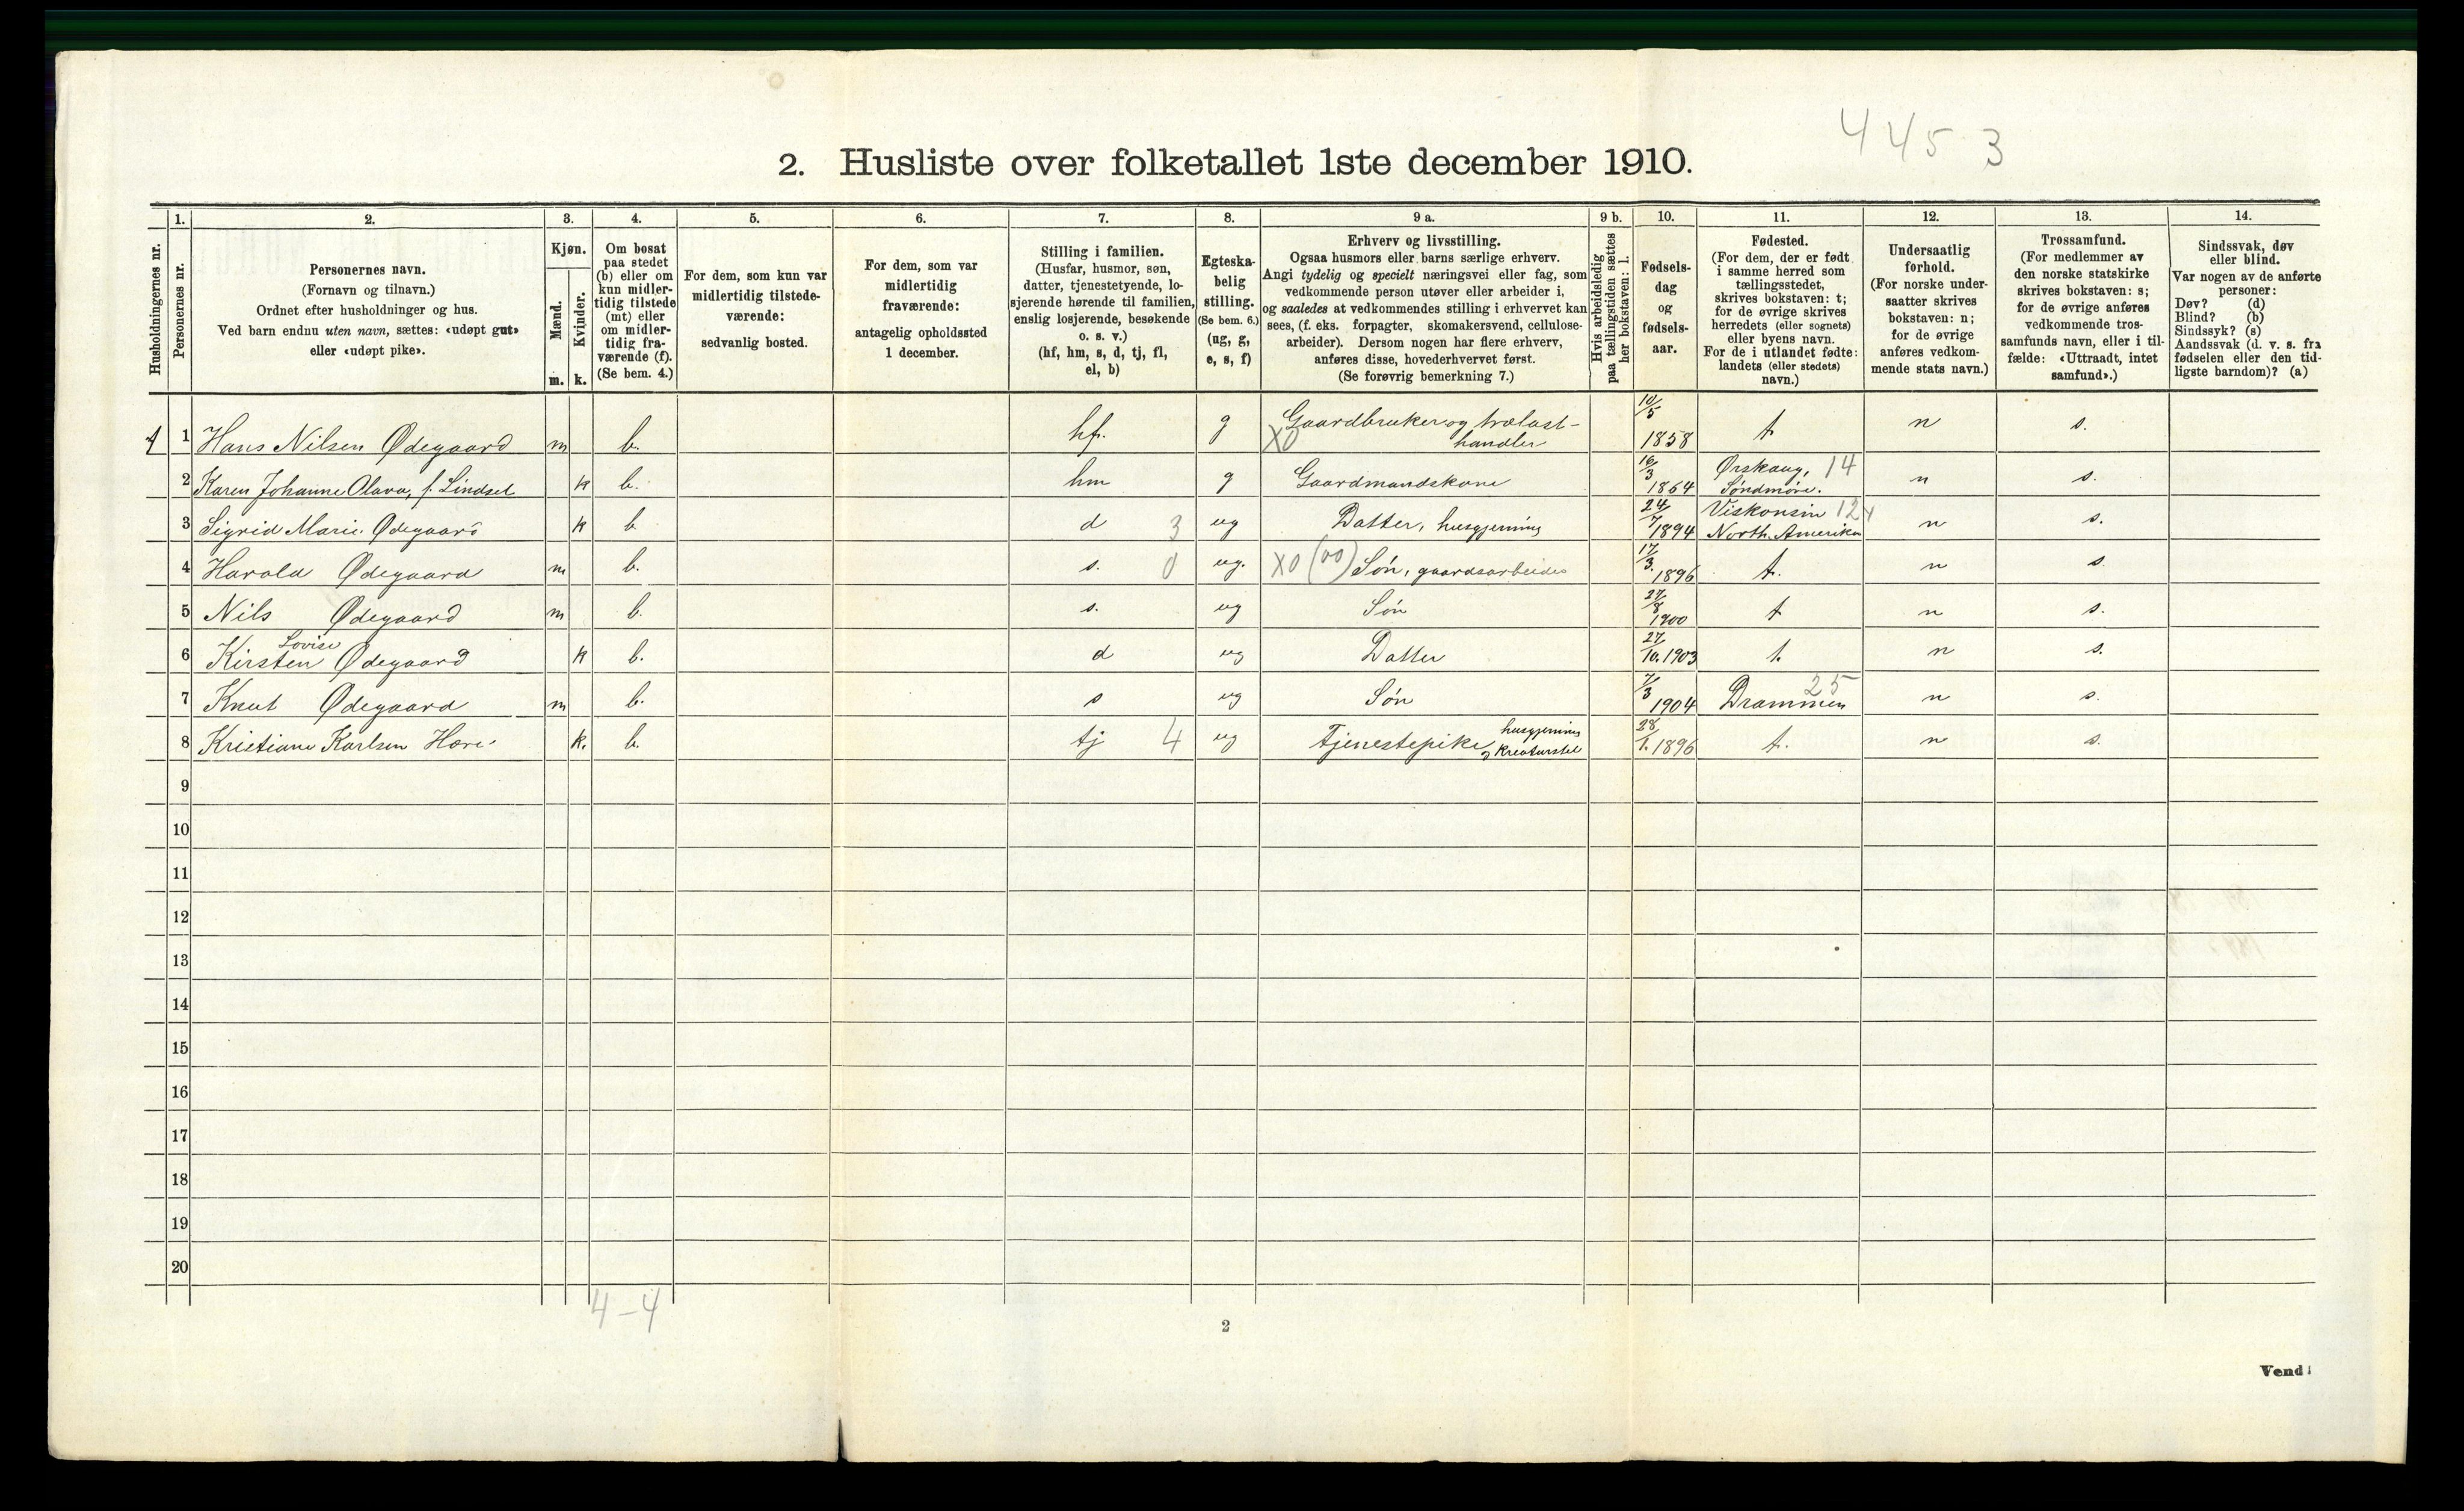 4453
2. Husliste over folketallet 1ste december 1910.
Husholdningernes nr.
1.
Personernes nr.
2.
Personernes navn.
(Fornavn og tilnavn.)
Ordnet efter husholdninger og hus.
Ved barn endnu uten navn, sættes: «udøpt gut»
eller «udøpt pike».
3.
Kjøn.
Mænd.
Kvinder.
m. k.
4.
Om bosat
paa stedet
(b) eller om
kun midler-
tidig tilstede
(mt) eller
om midler-
tidig fra-
værende (f).
(Se bem. 4.)
5.
For dem, som kun var
midlertidig tilstede-
værende:
sedvanlig bosted.
6.
For dem, som var
midlertidig
fraværende:
antagelig opholdssted
1 december.
7.
Stilling i familien.
(Husfar, husmor, søn,
datter, tjenestetyende, lo-
sjerende hørende til familien,
enslig losjerende, besøkende
o. s. v.)
(hf, hm, s, d, tj, fl,
el, b)
8.
Egteska-
belig
stilling.
(Se bem. 6.)
(ug, g,
e, s, f)
9 a.
Erhverv og livsstilling.
Ogsaa husmors eller barns særlige erhverv.
Angi tydelig og specielt næringsvei eller fag, som
vedkommende person utøver eller arbeider i,
og saaledes at vedkommendes stilling i erhvervet kan
sees, (f. eks. forpagter, skomakersvend, cellulose-
arbeider). Dersom nogen har flere erhverv,
anføres disse, hovederhvervet først.
(Se forøvrig bemerkning 7.)
9 b.
Hvis arbeidsledig
paa tællingstiden sættes
her bokstaven: l.
10.
Fødsels-
dag
og
fødsels-
aar.
11.
Fødested.
(For dem, der er født
i samme herred som
tællingsstedet,
skrives bokstaven: t;
for de øvrige skrives
herredets (eller sognets)
eller byens navn.
For de i utlandet fødte:
landets (eller stedets)
navn.)
12.
Undersaatlig
forhold.
(For norske under-
saatter skrives
bokstaven: n;
for de øvrige
anføres vedkom-
mende stats navn.)
13.
Trossamfund.
(For medlemmer av
den norske statskirke
skrives bokstaven: s;
for de øvrige anføres
vedkommende tros-
samfunds navn, eller i til-
fælde: «Uttraadt, intet
samfund».)
14.
Sindssvak, døv
eller blind.
Var nogen av de anførte
personer:
Døv? (d)
Blind? (b)
Sindssyk? (s)
Aandssvak (d. v. s. fra
fødselen eller den tid-
ligste barndom)? (a)
1 1 Hans Nilsen Ødegaard m b. hf. g X0 Gaardbruker og trælast-handler 10/5 1858 t n s.
2 Karen Johanne Olava, f. Lindset k b. hm g Gaardmandskone 16/3 1864 Ørskaug, 14 Søndmøre. n s.
3 Sigrid Marie Ødegaard k b d 3 ug Datter, husgjerning 24/7 1894 Viskonsin 124 North. Amerika n s.
4 Harald Ødegaard m b. s. 0 ug. X0 (00) Søn, gaardsarbeide 17/3. 1896 t. n s.
5 Nils Ødegaard m b. s. ug Søn 27/8 1900 t n s.
6 Kirsten Lovise Ødegaard k b. d ug Datter 27/10. 1903 t. n s.
7 Knut Ødegaard m b. s ug Søn 7/3 1904 Drammen 25 n s.
8 Kristiane Karlsen k. b. tj 4 ug Tjenestepike, husgjerning og Kreaturstel 28/1. 1896 t. n s.
9
10
11
12
13
14
15
16
17
18
19
20
4-4
2
Vend!